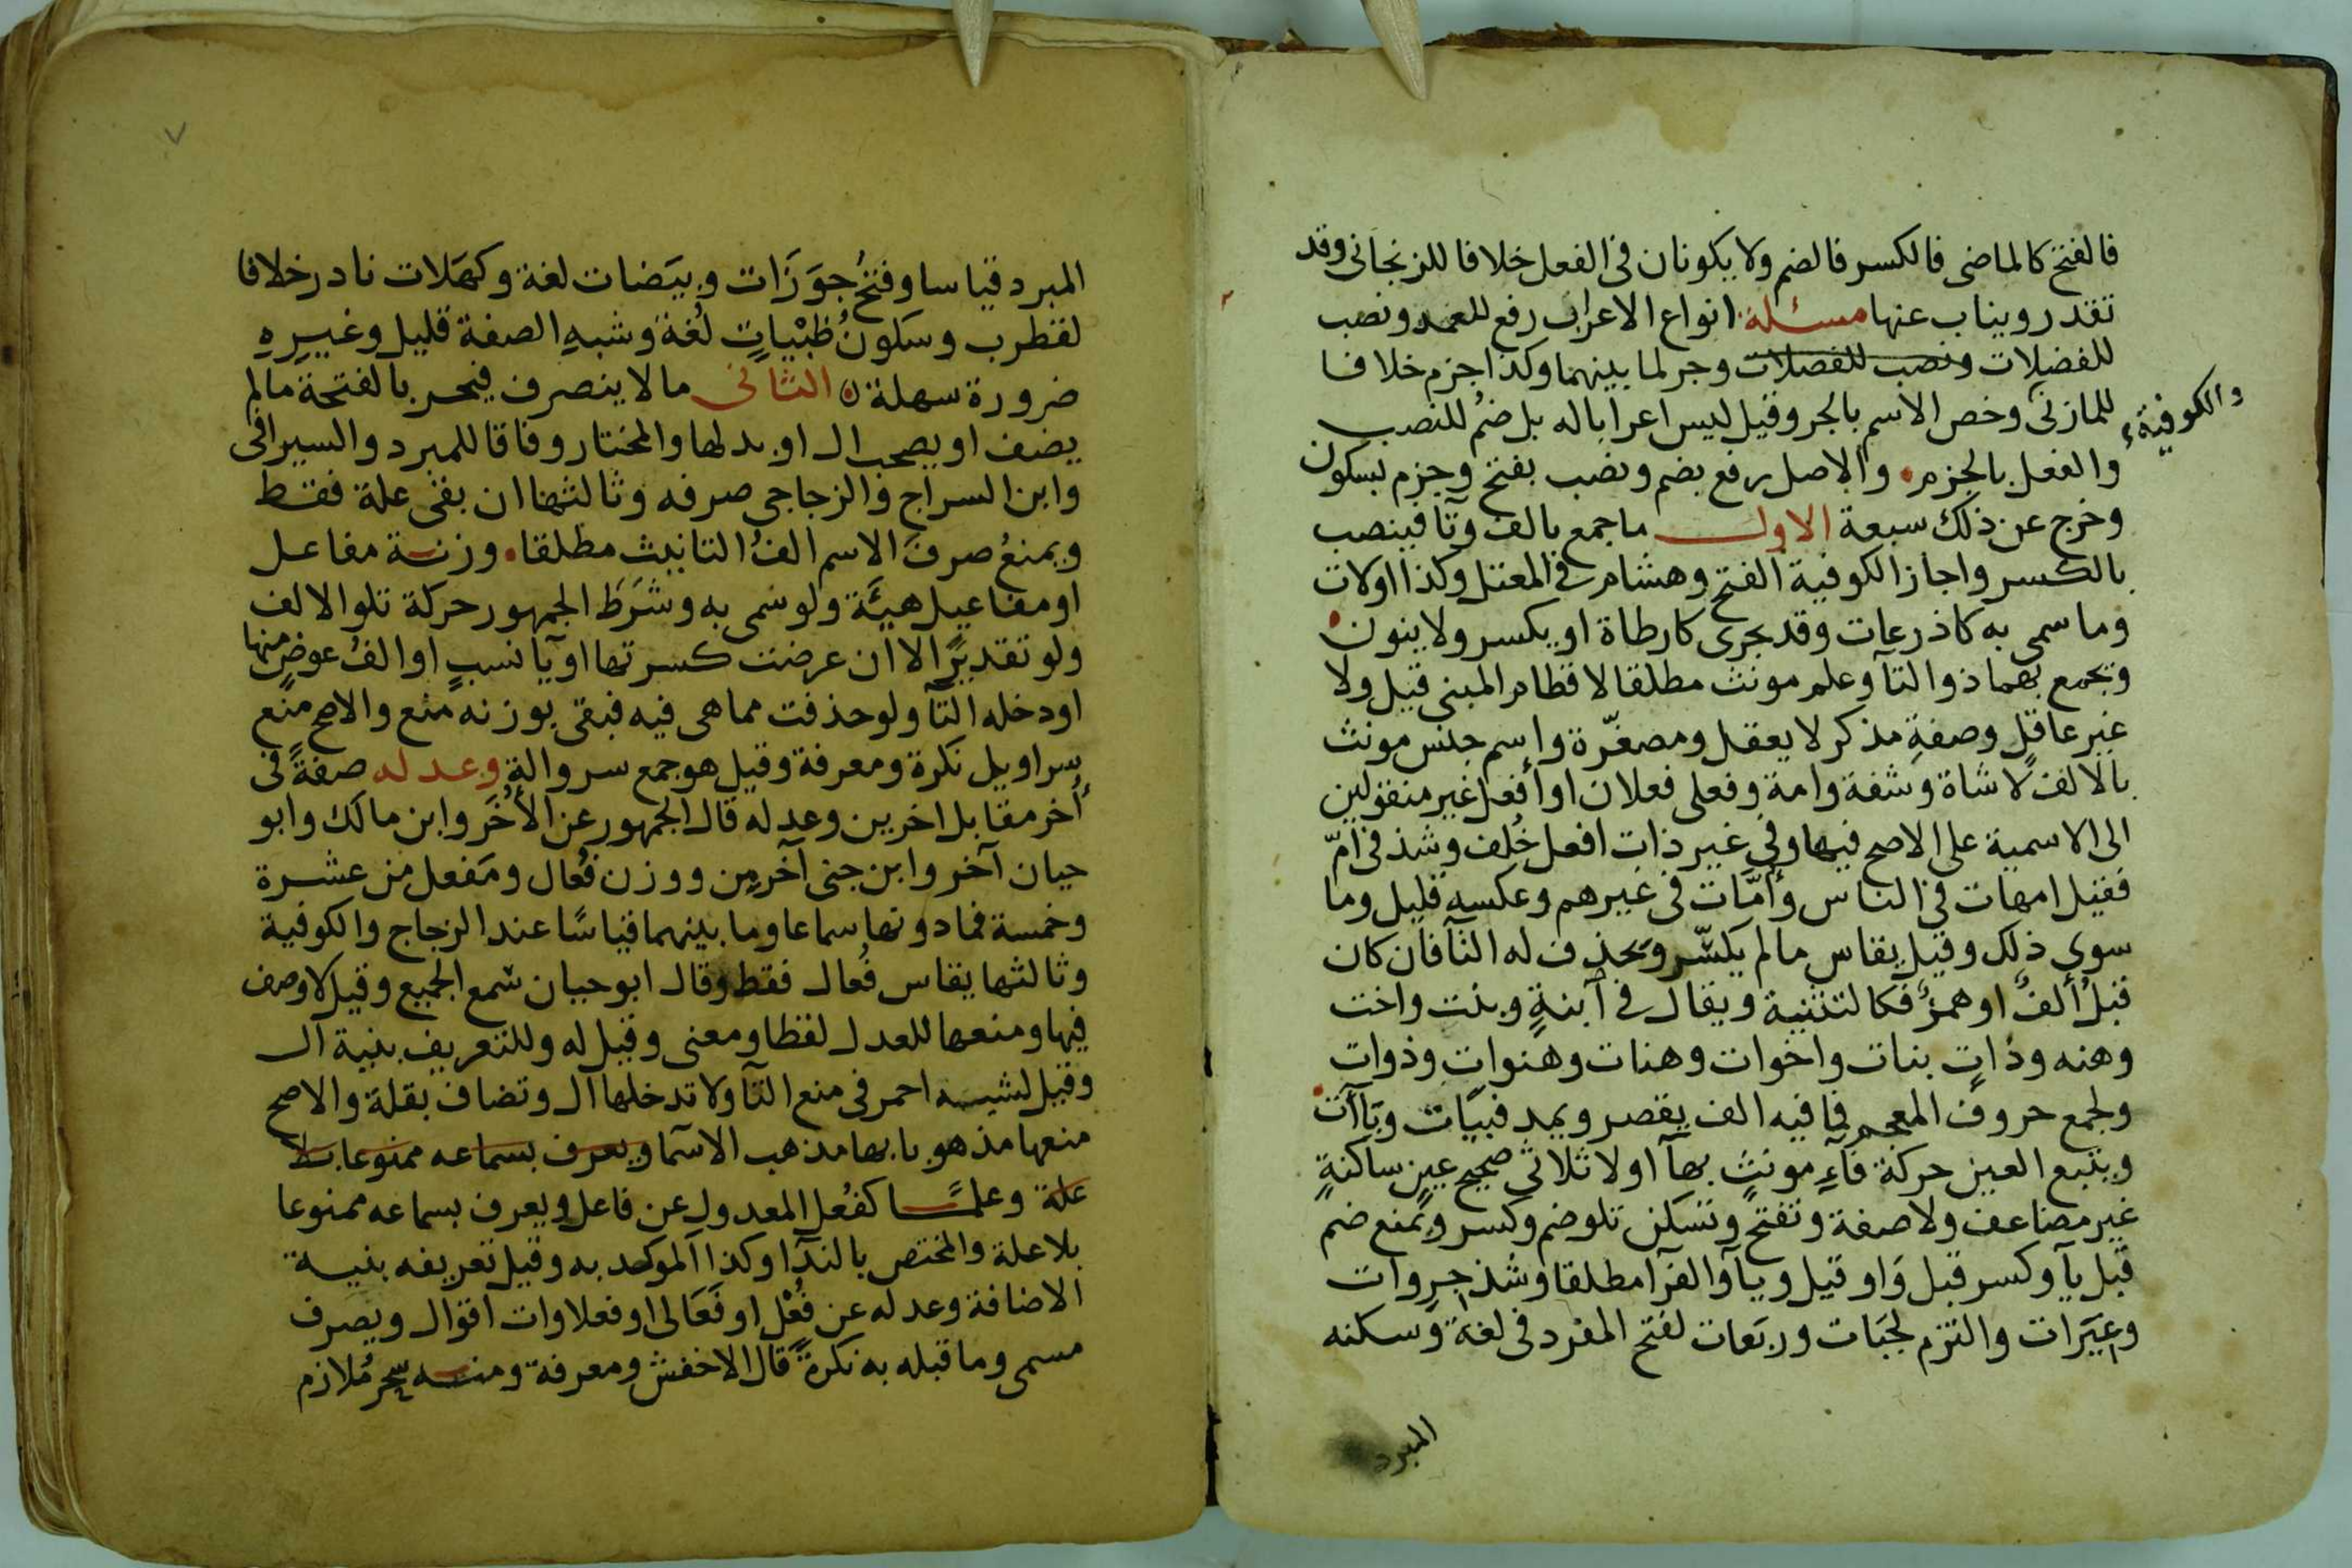 فالفتح كالماضى فالكسر فالضم ولا يكونان فى الفعل خلافا للزنجانى وقد
تقدر ويناب عنها مسئلة انواع الاعراب رفع للعمد ونصب
للفضلات ونصب للفضلات وجر لما بينهما وكذا جزم خلافا
للمازنى والكوفية وخص الاسم بالجر وقيل ليس اعرابا له بل ضم للنصب
والفعل بالجزم والاصل رفع بضم ونصب بفتح وجزم بسكون
وخرج عن ذلك سبعة الاول ما جمع بالف وتا فينصب
بالكسر واجاز الكوفية الفتح وهشام فى المعتل وكذا اولات
وما سمى به كاذرعات وقد يجرى كارطاة او يكسر ولا ينون
وتجمع بهما ذو التآ وعلم مونث مطلقا لا قطام المبنى قيل ولا
غير عاقل وصفة مذكر لا يعقل ومصغّرة واسم جنس مونث
بالالف لا شاة وشفة وامة وفعلى فعلان او افعل غير منقولين
الى الاسمية على الاصح فيها وفى غير ذات افعل خُلف وشذ فى امّ
فقيل امهات فى الناس وأمّات فى غيرهم وعكسه قليل وما
سوى ذلك وقيل يقاس ما لم يكسّر ويحذف له التآ فان كان
قبلُ ألفٌ او همزٌ فكالتثنية ويقال فى ابنةٍ وبنت واخت
وهنه وذات بنات واخوات وهنات وهنوات وذوات
ولجمع حروف المعجم فما فيه الف يقصر ويمد فبيّات وبَاآت
ويتبع العين حركة فآءِ مونثٍ بهآ اولا ثلاثى صحيح عينٍ ساكنةٍ
غير مضاعف ولا صفة وتفتح وتسكن تلو ضم وكسر ويمنع ضم
قبل يآ وكسر قبل وَاو قيل ويآ والفرّا مطلقا وشذ جروات
وعيَرات والتزم لجَبَات وربَعات لفتح المفرد فى لغة وسكنه
المبرد
المبرد قياسا وفتحُ جوَزَات وبيَضات لغة وكهَلات نادر خلافا
لقطرب وسكون ظبْياتٍ لُغة وشبهِ الصفة قليل وغيرِهِ
ضرورة سهلة الثانى ما لا ينصرف فيجر بالفتحة ما لم
يضف او يصحب ال او بدلها والمختار وفاقا للمبرد والسيرافى
وابن السراج والزجاجى صرفه وثالثها ان بقى علة فقط
ويمنعُ صرفَ الاسم الفُ التانيث مطلقا وزنة مفاعل
او مفاعيل هيئَة ولو سُمى به وشَرَطَ الجمهور حركة تلو الالف
ولو تقديرًا الا ان عرضت كسرتها او يآ نسبٍ او الفُ عوضٍ منها
او دخله التآ ولو حذفت مما هى فيه فبقى بوزنه منع والاصح منع
سراويل نكرة ومعرفة وقيل هو جمع سروالة وعدله صفةً فى
أُخر مقابل اخرين وعدله قال الجمهور عن الأُخَر وابن مالك وابو
حيان آخر وابن جنى آخرمِن ووزن فُعال ومَفعل من عشرة
وخمسة فما دونها سماعا وما بينهما قياسًا عند الزجاج والكوفية
وثالثها يقاس فُعال فقط وقال ابو حيان سُمع الجميع وقيل لا وصف
فيها ومنعها للعدل لفظا ومعنى وقيل له وللتعريف بنية ال
وقيل لشبه احمر فى منع التآ ولا تدخلها ال وتضاف بقلة والاصح
منعها مذهوبا بها مذهب الاسما ويعرف بسماعه ممنوعا بلا
علة وعلمًا كفُعل المعدول عن فاعل ويعرف بسماعه ممنوعا
بلا علة والمختص بالندآ وكذا الموكد به وقيل تعريفه بنية
الاضافة وعدله عن فُعْل او فَعَالى او فعلاوات اقوال ويصرف
مسمى وما قبله به نكرةً قال الاخفش ومعرفة ومنه سحر مُلازم